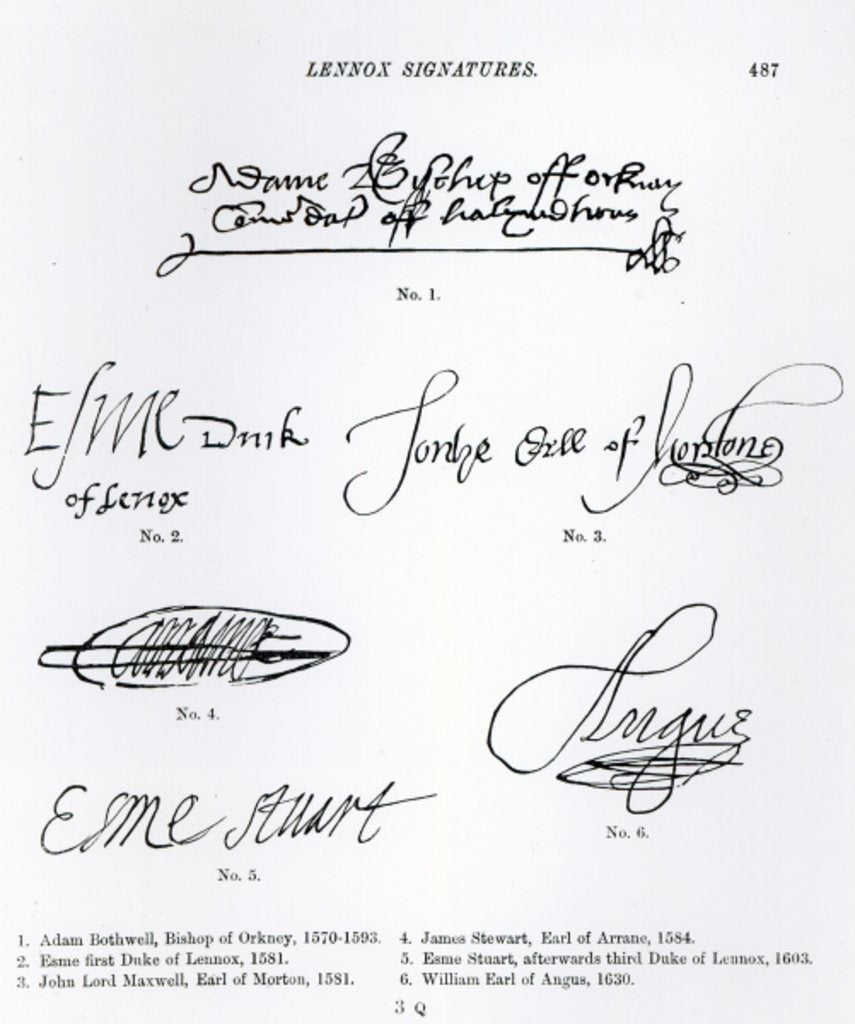 LENNOX SIGNATURES.
487
Adame Bischop off orknay
off halyrudhous
No. 1.
Esme Duik
of Lenox
No. 2.
Jonhe Erll of Mortone
No. 3.
No. 4.
Angus
No. 6.
Esme Stuart
No. 5.
1. Adam Bothwell, Bishop of Orkney, 1570-1593.
2. Esme first Duke of Lennox, 1581.
3. John Lord Maxwell, Earl of Morton, 1581.
4. James Stewart, Earl of Arrane, 1584.
5. Esme Stuart, afterwards third Duke of Lennox, 1603.
6. William Earl of Angus, 1630.
3 Q